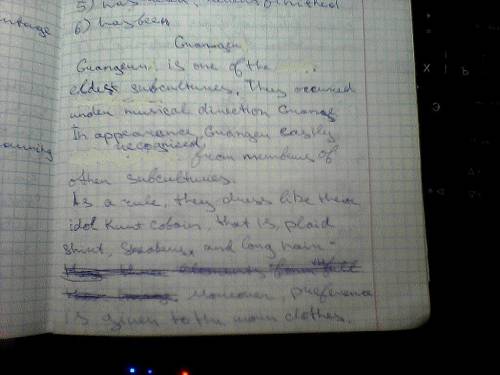 5) has finished
6) has been
is one of the
eldest subcultures. They occured
under musical direction Grunge
In appearance, easily
recognized from members of
other subcultures.
As a rule, they dress like there
idol Kurt Cobain, that is, plaid
shirt, sneakers, and long hair -
Moreover, preference
is given to the worn clothes.